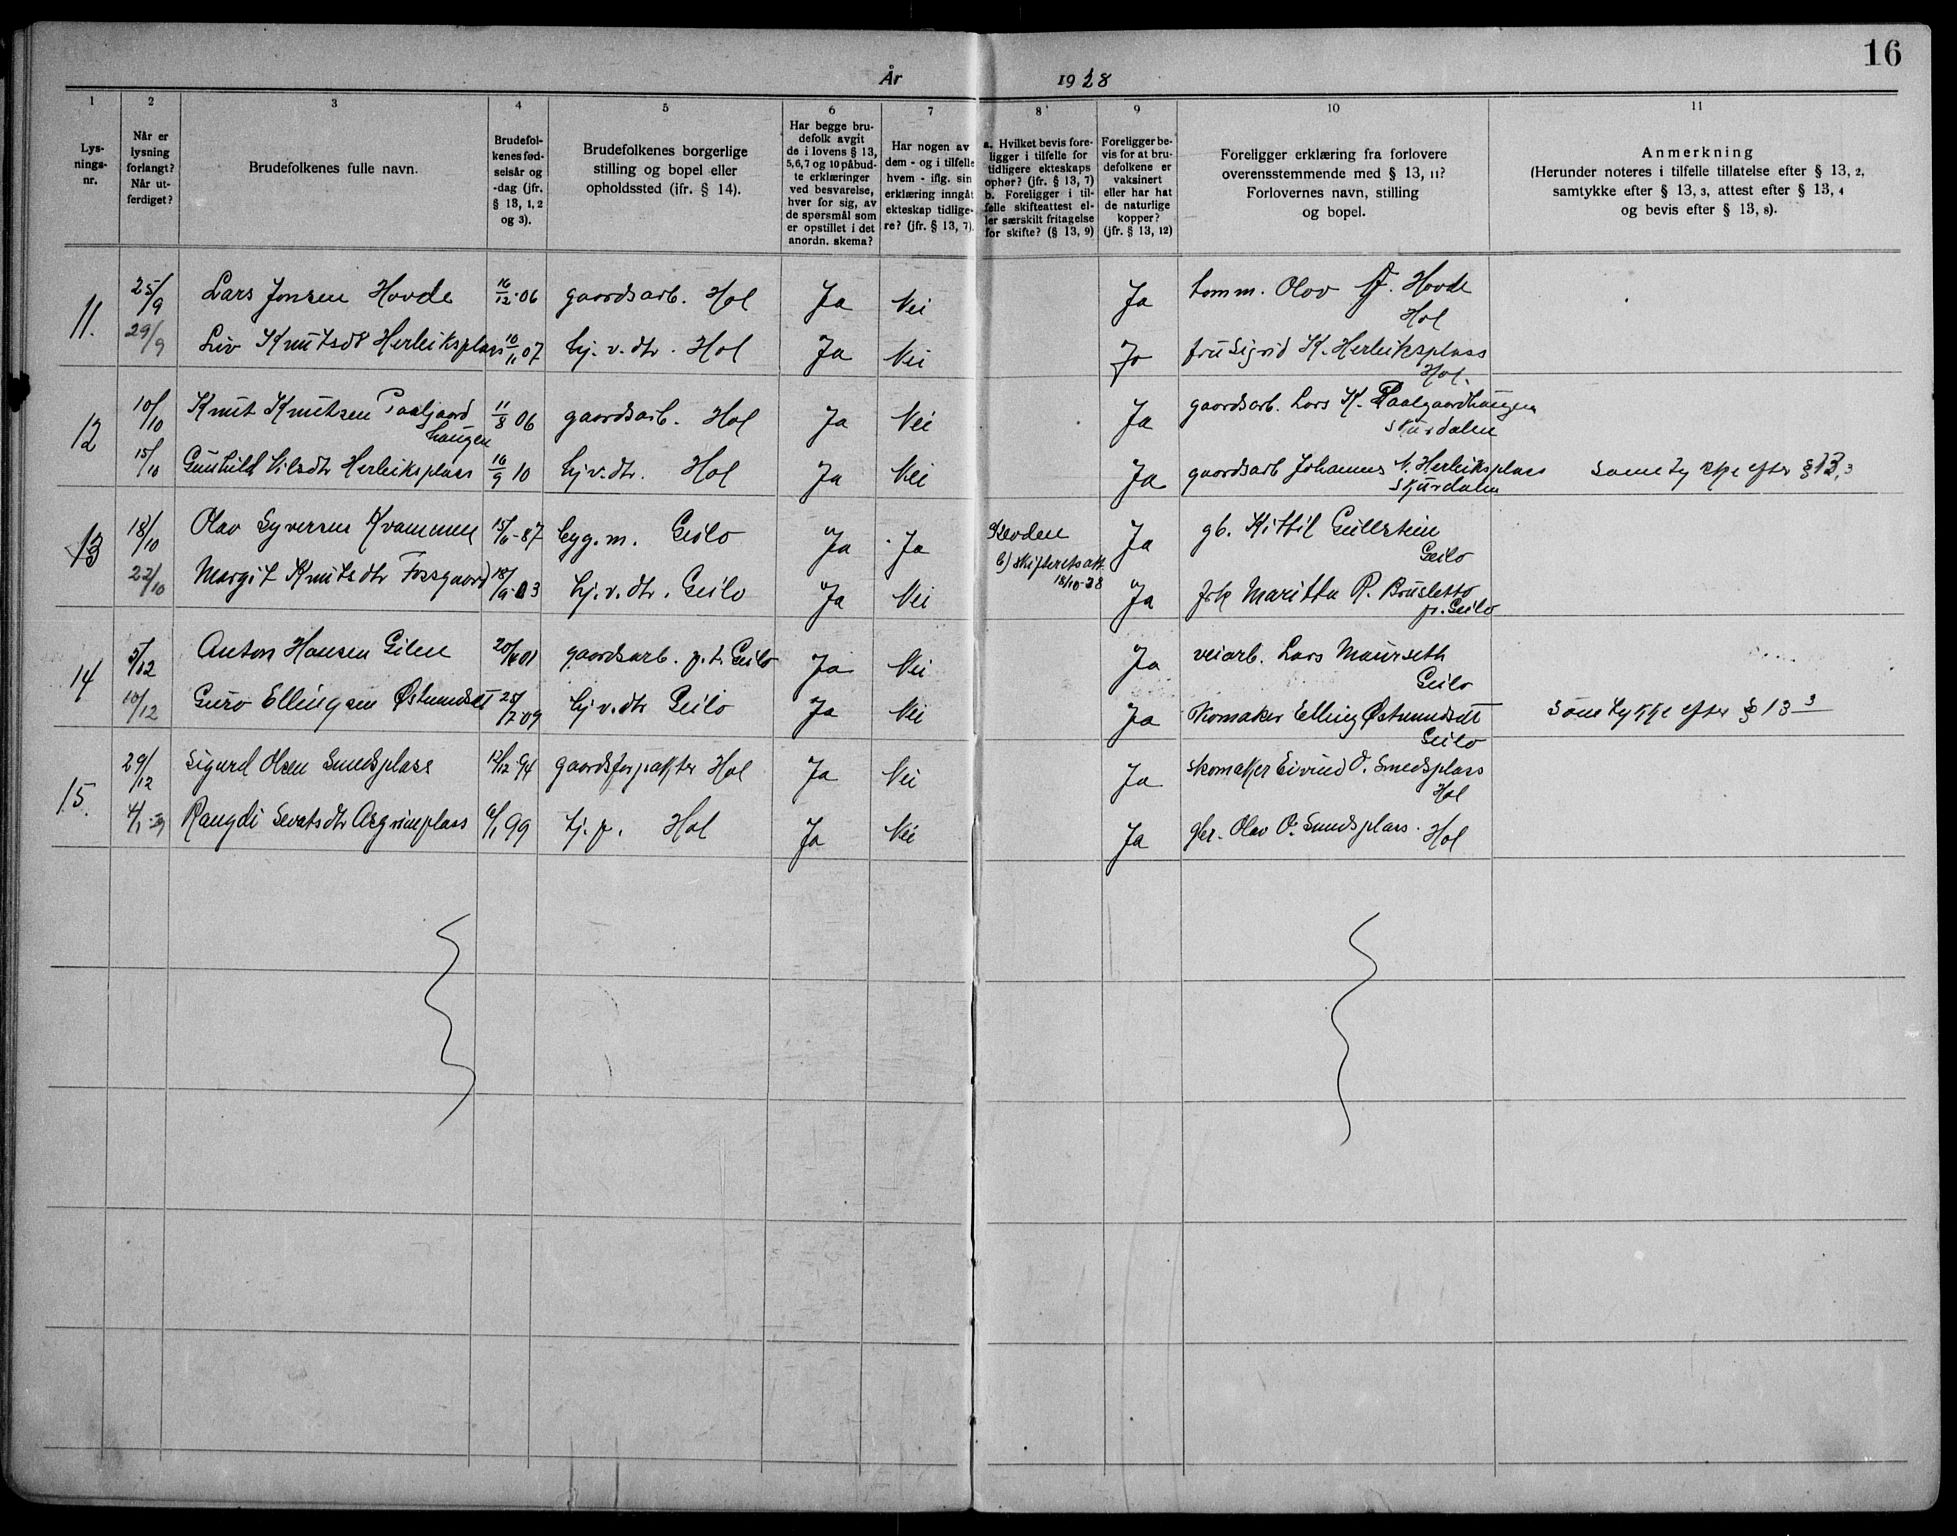 16
År 1928
1 2 3 4 5 6 7 8 9 10 11
Lys-
nings-
nr.
Når er
lysning
forlangt?
Når ut-
ferdiget?
Brudefolkenes fulle navn.
Brudefol-
kenes fød-
selsår og
-dag (jfr.
§ 13, 1, 2
og 3).
Brudefolkenes borgerlige
stilling og bopel eller
opholdssted (jfr. § 14).
Har begge bru-
defolk avgit
de i lovens § 13,
5,6,7 og 10 påbud-
te erklæringer
ved besvarelse,
hver for sig, av
de spørsmål som
er opstillet i det
anordn. skema?
Har nogen av
dem - og i tilfelle
hvem - iflg. sin
erklæring inngåt
ekteskap tidlige-
re? (jfr. § 13, 7).
a. Hvilket bevis fore-
ligger i tilfelle for
tidligere ekteskaps
ophør? (jfr. § 13, 7)
b. Foreligger i til-
felle skifteattest el-
ler særskilt fritagelse
for skifte? (§ 13, 9)
Foreligger be-
vis for at bru-
defolkene er
vaksinert
eller har hat
de naturlige
kopper?
(jfr. § 13, 12)
Foreligger erklæring fra forlovere
overensstemmende med § 13, 11?
Forlovernes navn, stilling
og bopel.
Anmerkning
(Herunder noteres i tilfelle tillatelse efter § 13, 2,
samtykke efter § 13, 3, attest efter § 13, 4
og bevis efter § 13, 8).
11. 25/9 Lars Jonsen Hovde 16/12-06 gaardsarb. Hol Ja Nei Ja tømm. Olav Hovde
Hol
29/9 Liv Knutsdtr Herleiksplass 10/11 07 hj. v. dtr. Hol Ja Nei Ja fru Sigrid K. Herleiksplass
Hol.
12 10/10 Knut Knutsen Paalgaard 11/8 06 gaardsarb. Hol Ja Nei Ja gaardsarb. Lars K. Paalgaardhaugen
haugen Skurdalen
15/10 Gunhild Nilsdtr Herleiksplass 16/9 10 hj v. dtr. Hol Ja Nei Ja gaardsarb Johannes N. Herleiksplass samtykke efter § 13, 3
Skurdalen
13 18/10 Olav Syversen Kvammen 15/11-87 byg. m. Geilo Ja Ja Ja gb. Kittil Geilestein
Geilo
b) skifteretsatt. 18/10-28
22/10 Margit Knutsdtr Fossgaard 18/9-03 hj. v. dtr. Geilo Ja Nei Ja frk Maritta R. Brusletto
p. Geilo
14 5/12 Anton Hansen Gilen gaardsarb. p. t. Geilo Ja Nei Ja veiarb. Lars Maurseth
Geilo
10/12 Guro Ellingsen Østmundset 25/7-09 hj v. dtr Geilo Ja Nei Ja skomaker Elling Østmundset samtykke efter § 13 3
Geilo
15. 29/12 Sigurd Olsen Smedsplass 12/12 94 gaardsforpakter Hol Ja Nei Ja skomaker Eivind O. Smedsplass
Hol
4/1-29 Rangdi Sevatsdtr Asgrimplass 6/1 99 tj. p. Hol Ja Nei Ja gbr. Olav O. Smedsplass. Hol